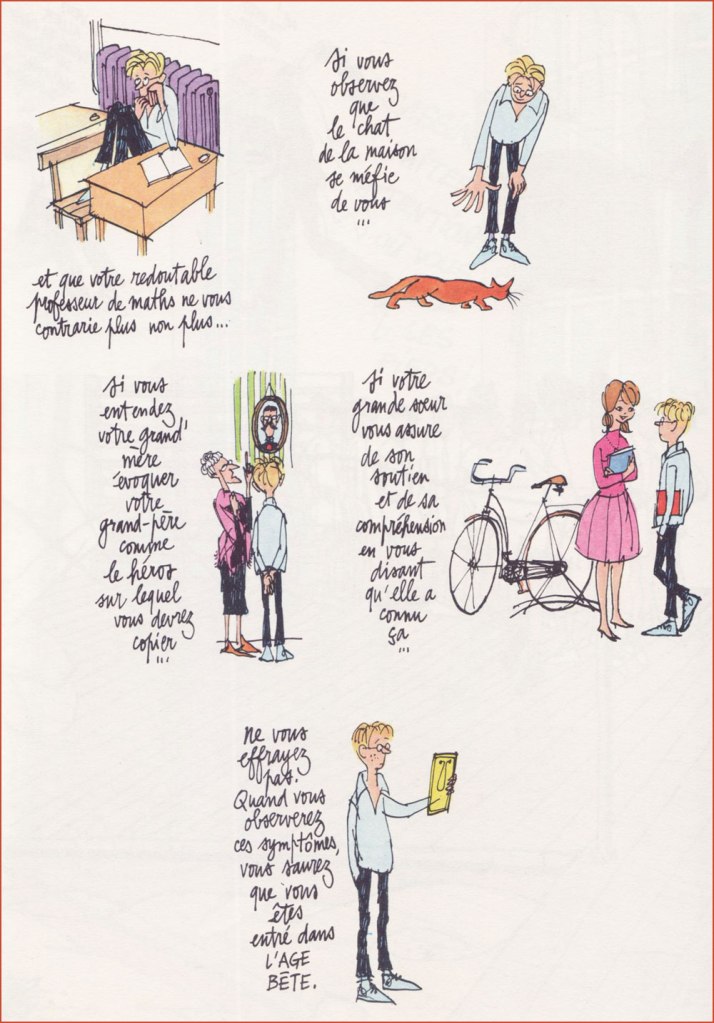 et que votre redoutable
professeur de maths ne vous
contrarie plus non plus...
si vous
observez
que
le chat
de la maison
se méfie
de vous
...
si vous
entendez
votre grand'
mère
évoquer
votre
grand-père
comme
le héros
sur lequel
vous devrez
copier
...
si votre
grande sœur
vous assure
de son
soutien
et de sa
compréhension
en vous
disant
qu'elle a
connu
ça
...
ne vous
effrayez
pas.
Quand vous
observerez
ces symptômes,
vous saurez
que vous
êtes
entré dans
L'AGE
BÊTE.